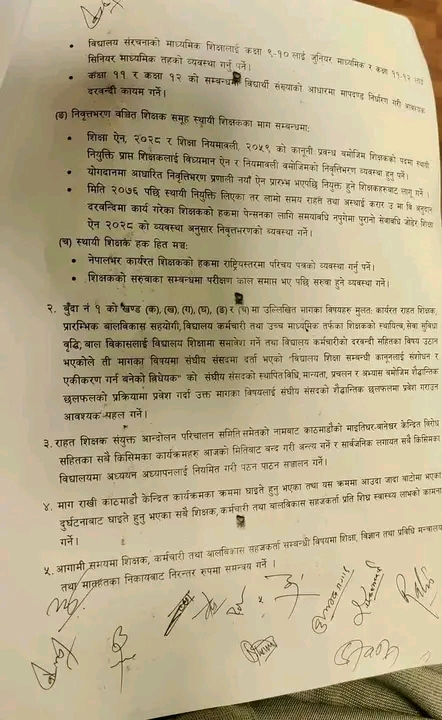 • विद्यालय संरचनाको माध्यमिक शिक्षालाई कक्षा ९-१० लाई जुनियर माध्यमिक र कक्षा ११-१२ लाई
सिनियर माध्यमिक तहको व्यवस्था गर्नु पर्ने।
• कक्षा ११ र कक्षा १२ को सम्बन्धमा विद्यार्थी संख्याको आधारमा मापदण्ड निर्धारण गरी आवश्यक
दरवन्दी कायम गर्ने।
(ङ) निवृत्तभरण वञ्चित शिक्षक समूह स्थायी शिक्षकका माग सम्बन्धमा:
• शिक्षा ऐन, २०२८ र शिक्षा नियमावली, २०५९ को कानूनी प्रबन्ध बमोजिम शिक्षकको पदमा स्थायी
नियुक्ति प्राप्त शिक्षकलाई विध्यमान ऐन र नियमावली बमोजिमको निवृत्तिभरण व्यवस्था हुनु पर्ने।
• योगदानमा आधारित निवृत्तिभरण प्रणाली नयाँ ऐन प्रारम्भ भएपछि नियुक्त हुने शिक्षकहरुबाट लागू गर्ने।
• मिति २०७६ पछि स्थायी नियुक्ति लिएका तर लामो समय राहत तथा अस्थाई करार उ मा बि अनुदान
दरवन्दिमा कार्य गरेका शिक्षकको हकमा पेन्सनका लागि समयावधि नपुगेमा पुरानो सेवाबधि जोडेर शिक्षा
ऐन २०२८ को व्यवस्था अनुसार निवृत्तभरणको व्यवस्था गर्ने।
(च) स्थायी शिक्षक हक हित मञ्च:
• नेपालभर कार्यरत शिक्षकको हकमा राष्ट्रियस्तरमा परिचय पत्रको व्यवस्था गर्नु पर्ने।
• शिक्षकको सरुवाका सम्बन्धमा परीक्षण काल समाप्त भए पछि सरुवा हुने व्यवस्था गर्ने।
२. बुँदा नं १ को खण्ड (क), (ख), (ग), (घ), (ङ) र (च) मा उल्लिखित मागका बिषयहरु मुलत: कार्यरत राहत शिक्षक,
प्रारम्भिक बालविकास सहयोगी, विद्यालय कर्मचारी तथा उच्च माध्यमिक तर्फका शिक्षकको स्थायित्व, सेवा सुविधा
वृद्धि, बाल बिकासलाई विद्यालय शिक्षामा समावेश गर्ने तथा विद्यालय कर्मचारीको दरवन्दी सहितका बिषय उठान
भएकोले ती मागका बिषयमा संघीय संसदमा दर्ता भएको "विद्यालय शिक्षा सम्बन्धी कानूनलाई संशोधन र
एकीकरण गर्न बनेको बिधेयक" को संघीय संसदको स्थापित विधि, मान्यता, प्रचलन र अभ्यास बमोजिम शैद्धान्तिक
छलफलको प्रक्रियामा प्रवेश गर्दा उक्त मागका बिषयलाई संघीय संसदको शैद्धान्तिक छलफलमा प्रवेश गराउन
आवश्यक पहल गर्ने।
३. राहत शिक्षक संयुक्त आन्दोलन परिचालन समिति समेतको नामबाट काठमाडौंको माइतिघर-बानेश्वर केन्द्रित विरोध
सहितका सबै किसिमका कार्यक्रमहरु आजको मितिबाट बन्द गरी अन्त्य गर्ने र सार्वजनिक लगायत सबै किसिमका
विद्यालयमा अध्ययन अध्यापनलाई नियमित गरी पठन पाठन सञ्चालन गर्ने।
४. माग राखी काठमाडौं केन्द्रित कार्यक्रमका क्रममा घाइते हुनु भएका तथा यस क्रममा आउदा जादा बाटोमा भएका
दुर्घटनाबाट घाइते हुनु भएका सबै शिक्षक, कर्मचारी तथा बालविकास सहजकर्ता प्रति शिघ्र स्वास्थ्य लाभको कामना
गर्ने।
५. आगामी समयमा शिक्षक, कर्मचारी तथा बालविकास सहजकर्ता सम्बन्धी बिषयमा शिक्षा, विज्ञान तथा प्रविधि मन्त्रालय
तथा मातहतका निकायबाट निरन्तर रुपमा समन्वय गर्ने।